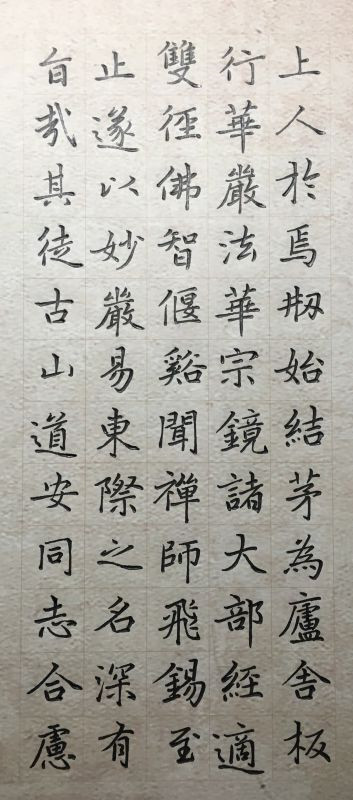 上人於焉刱始結茅為廬舍板
行華嚴法華宗鏡諸大部經適
雙徑佛智偃谿聞禪師飛錫至
止遂以妙嚴易東際之名深有
旨哉其徒古山道安同志合慮